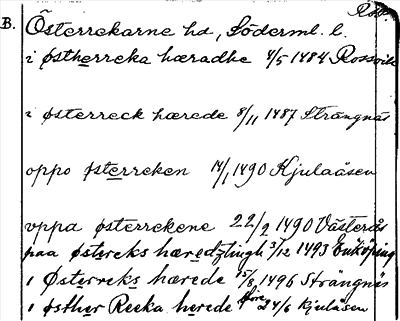 B. Österrekarne hd, Söderml. l.
i østherreka hæradhe 4/5 1484 Rossvik
i østerreck hærede 8/11 1487 Strängnäs
oppo østerreken 14/1 1490 Kjulaåsen
vppa østerrekene 22/2 1490 Västerås
paa østereks hæredztingh 3/12 1493 Enköping
i Østerreks hærede 15/8 1496 Strängnäs
i østher Recka herede före 24/6 Kjulaåsen